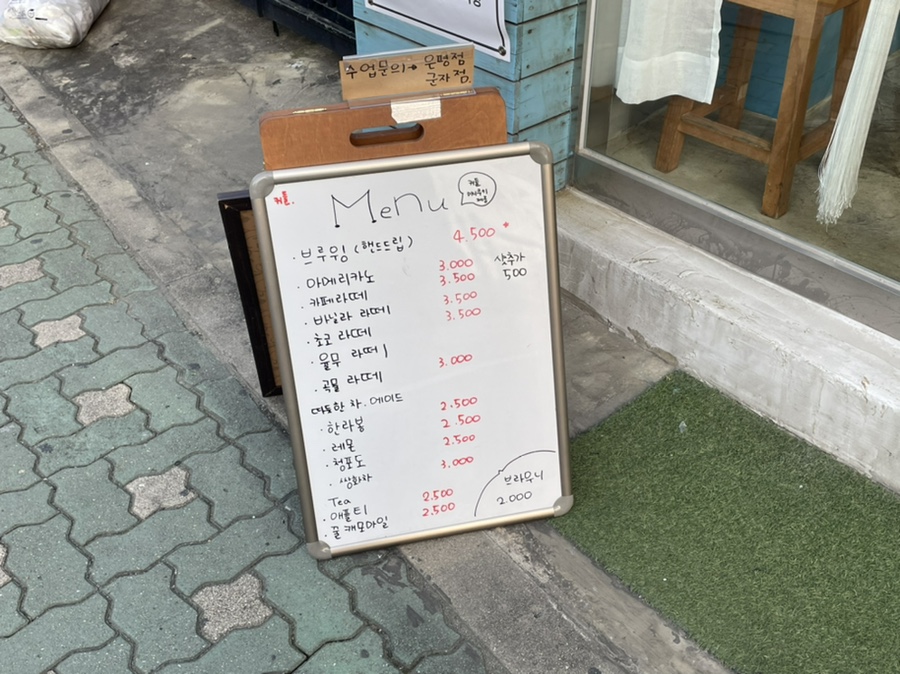 수업문의→ 은평점
군자점.
커플.
Menu
커플
메뉴
· 브루잉 (핸드드립) 4.500 *
· 아메리카노 3.000 샷추가
· 카페라떼 3.500 500
· 바닐라 라떼 3.500
· 초코 라떼 3.500
· 율무 라떼
· 곡물 라떼 3.000
따뜻한 차. 에이드
· 한라봉 2.500
· 레몬 2.500
· 청포도 2.500
· 쌍화차 3.000
Tea
· 애플티 2.500
· 꿀캐모마일 2.500
브라우니
2.000